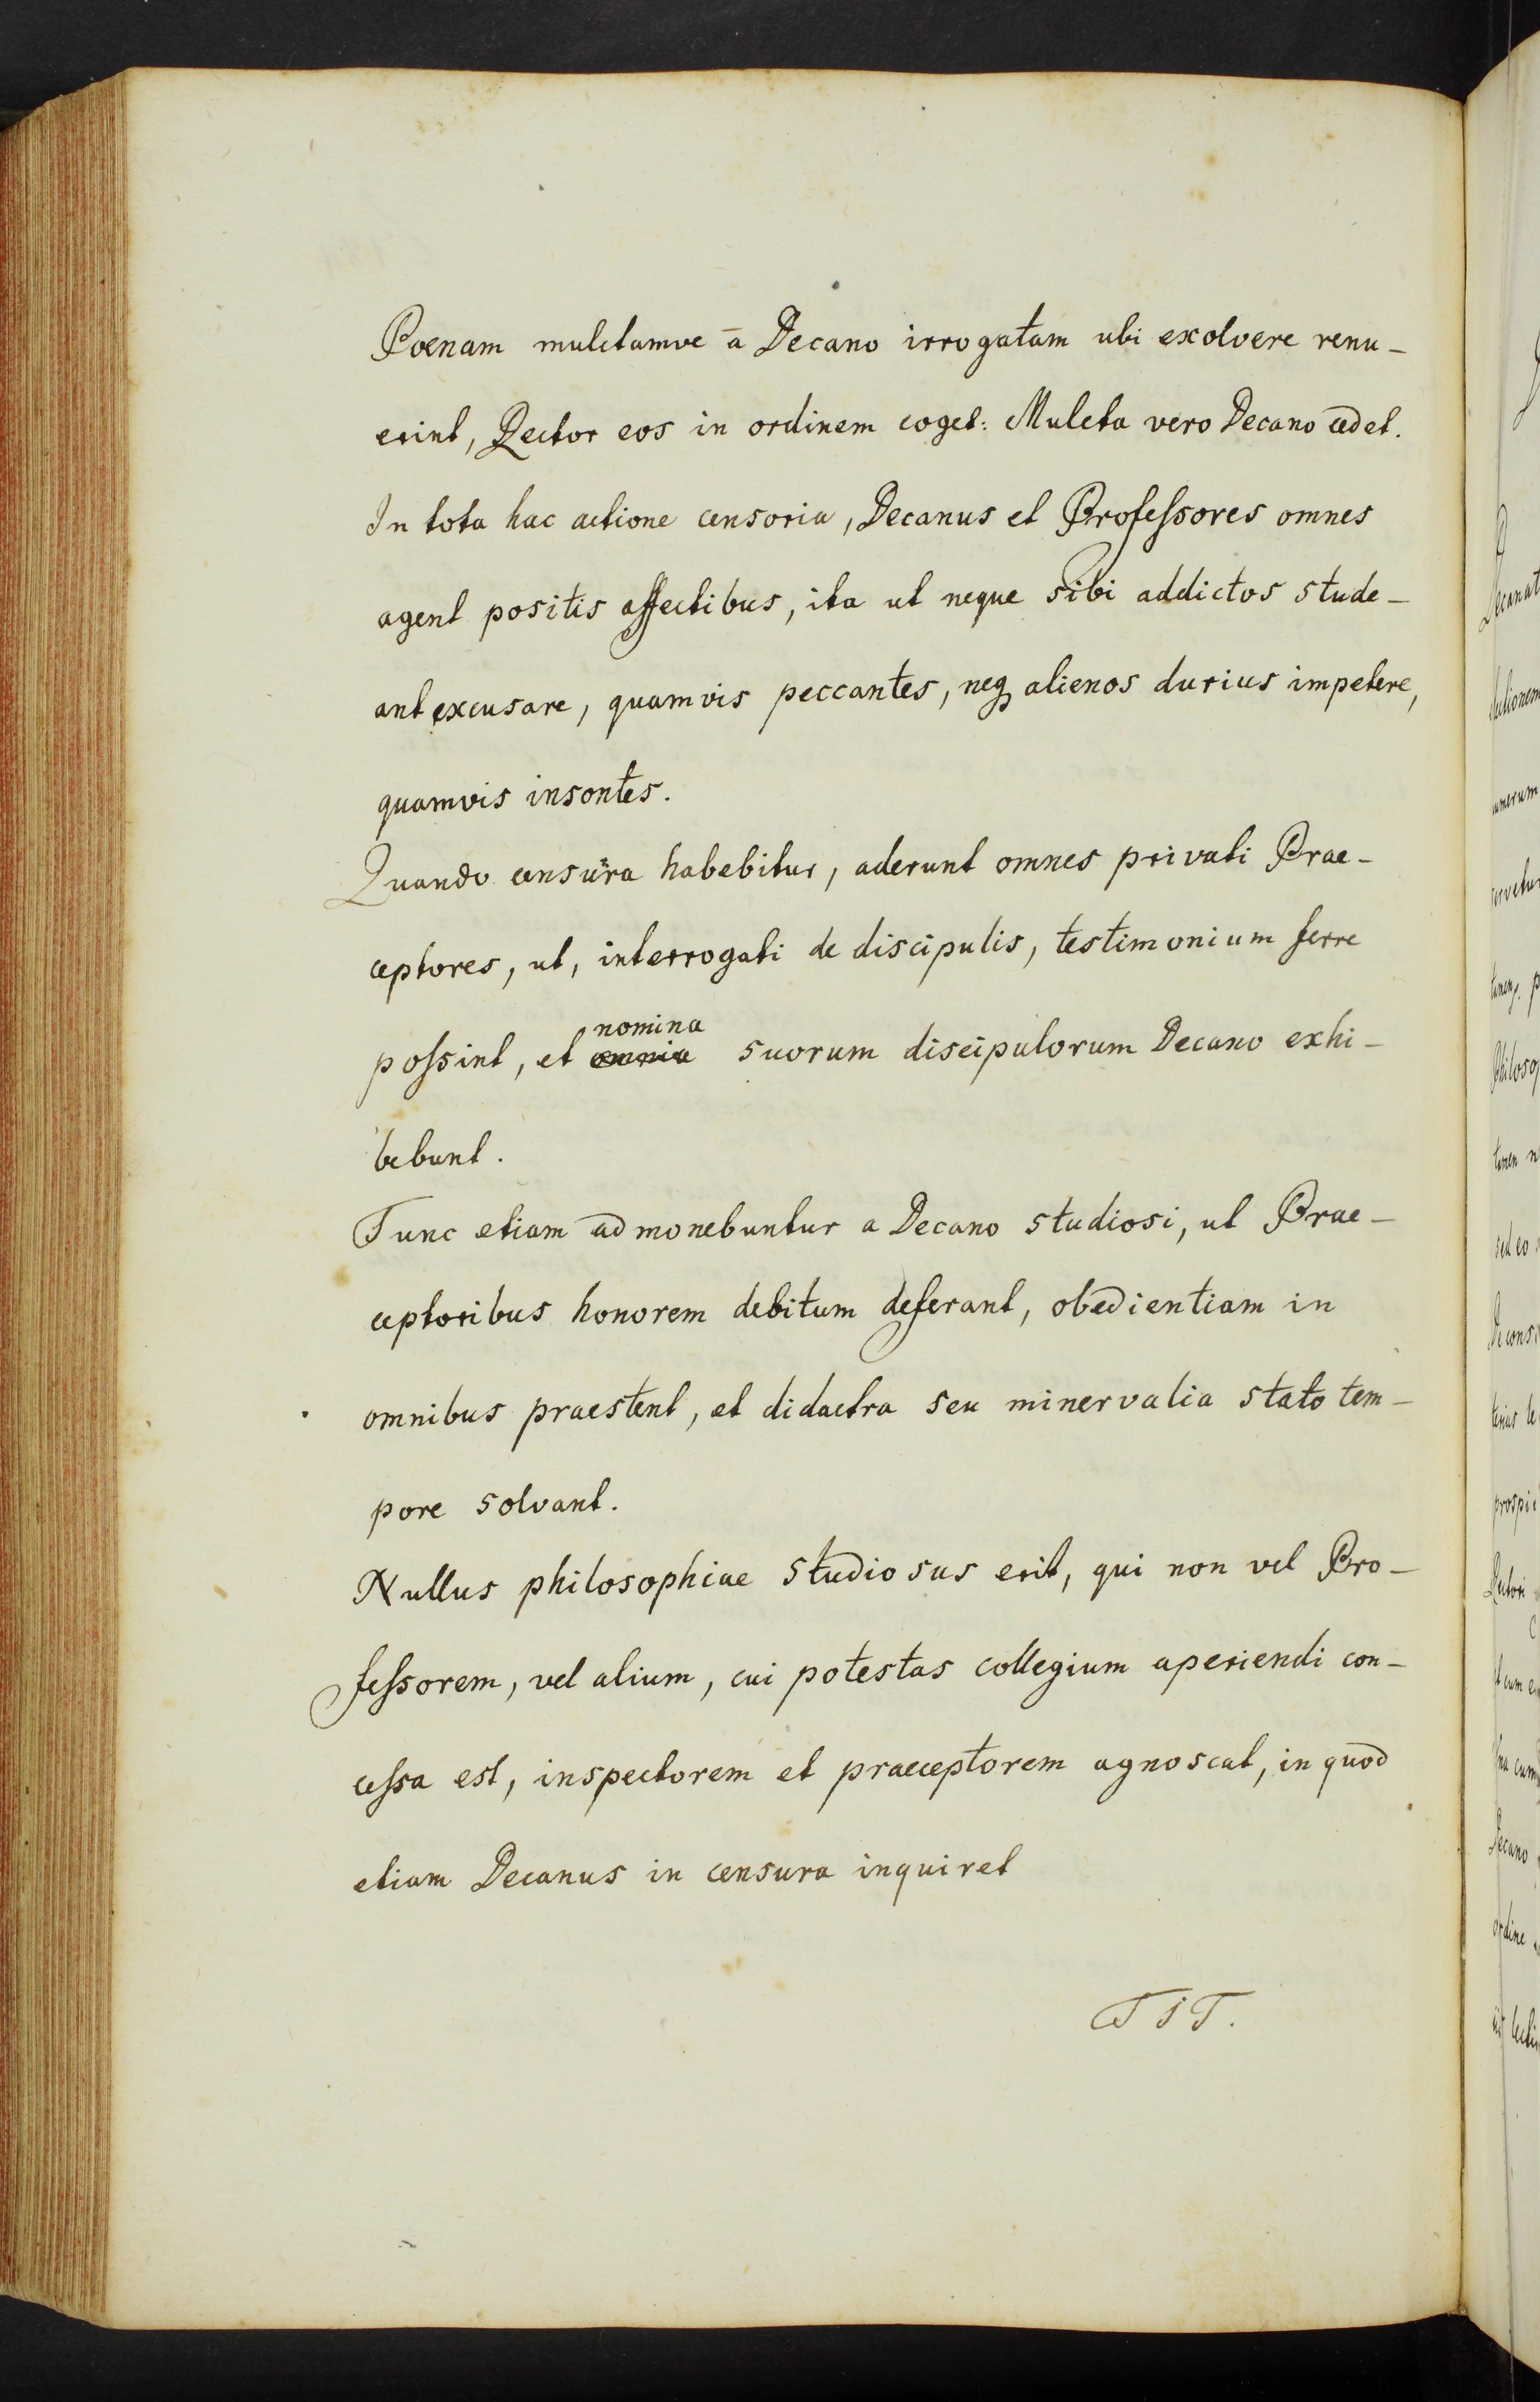 Poenam mulctamve a Decano irrogatam ubi exolvere renu-
erint, Rector eos in ordinem coget: Mulcta vero Decano cedet.
In tota hac actione censoria, Decanus et Profeſsores omnes
agent positis affectibus, ita ut neque sibi addictos stude-
ant excusare, quamvis peccantes, neq alienos durius impetere,
quamvis insontes.
Quando censura habebitur, aderunt omnes privati Prae-
ceptores, ut, interrogati de discipulis, testimonium ferre
nomina
poſsint, et omnia suorum discipulorum Decano exhi-
bebunt.
Tunc etiam admonebuntur a Decano studiosi, ut Prae-
ceptoribus honorem debitum deferant, obedientiam in
omnibus praestent, et didactra seu minervalia stato tem-
pore solvant.
Nullus philosophiae studiosus erit, qui non vel Pro-
feſsorem, vel alium, cui potestas collegium aperiendi con-
ceſsa est, inspectorem et praeceptorem agnoscat, in quod
etiam Decanus in censura inquiret
TIT.